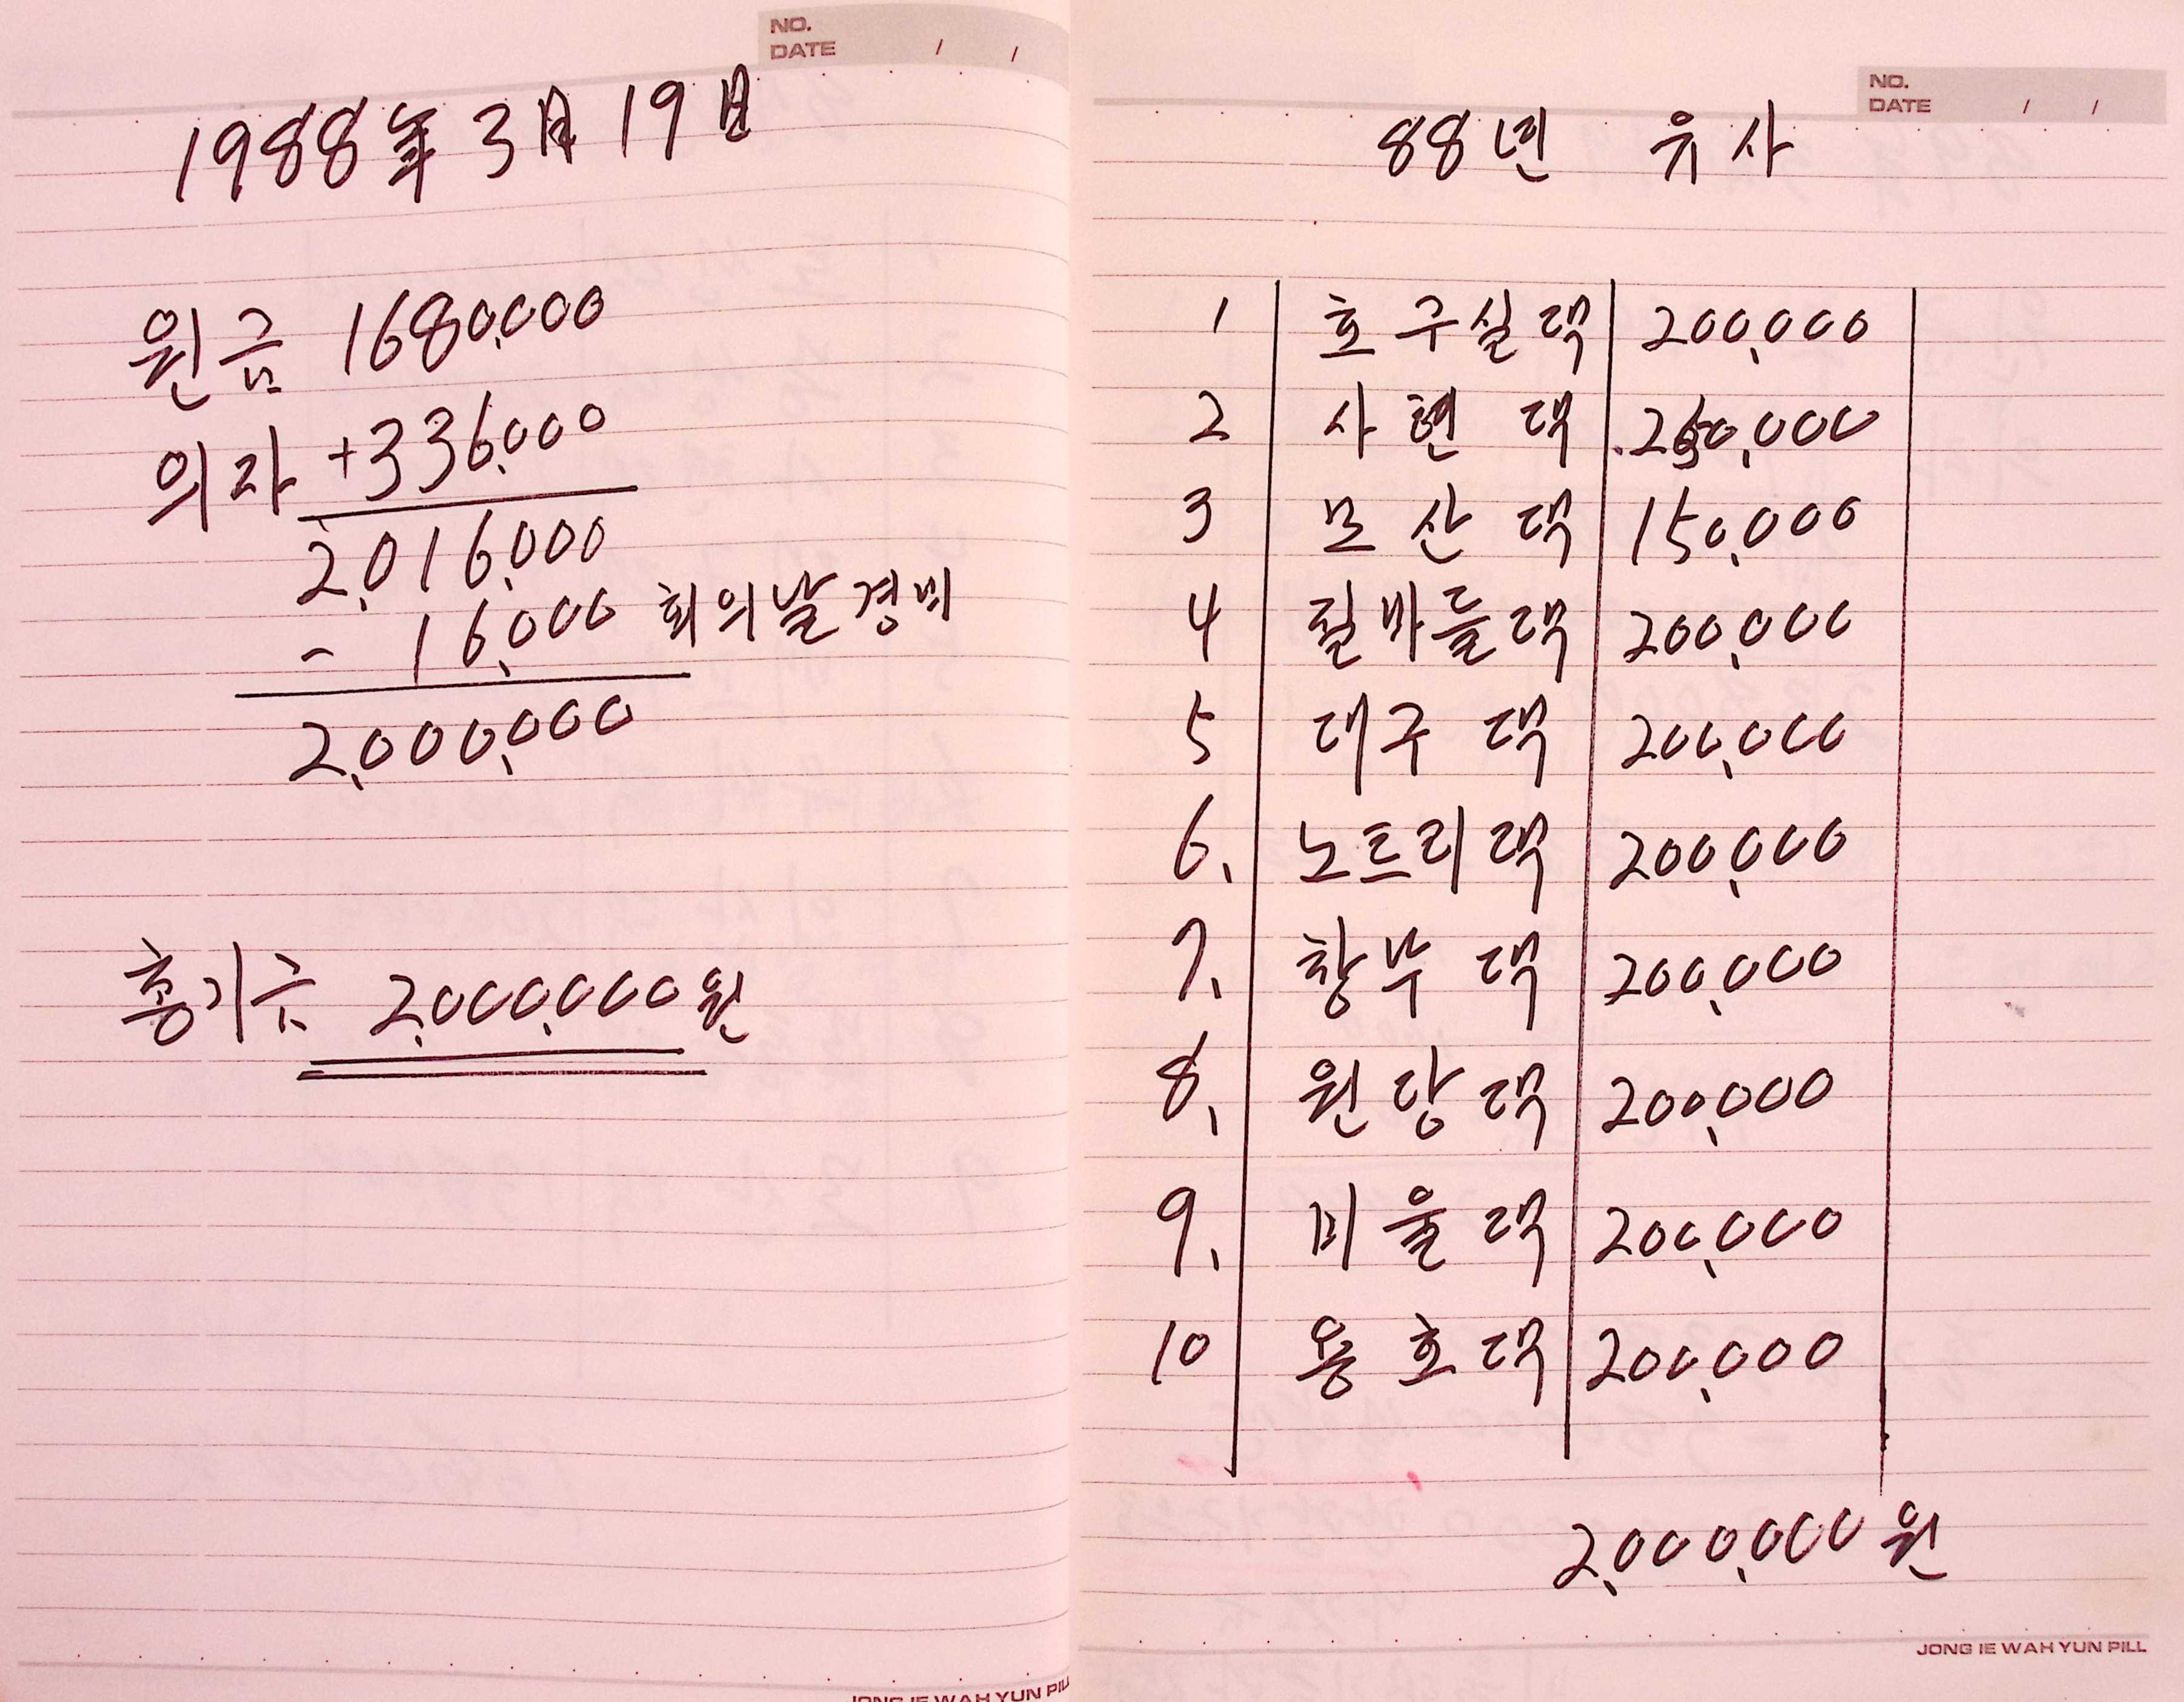 NO.
DATE / /
1988年 3月 19日
원금 1680,000
의자 +336,000
2,016,000
- 16,000 회의날경비
2,000,000
총기금 2,000,000원
JONG IE WAH YUN PILL
NO.
DATE / /
88년 유사
1 호구실댁 200,000
2 사현댁 250,000
3 모산댁 150,000
4 필바들댁 200,000
5 대구댁 200,000
6. 노트리댁 200,000
7. 창부댁 200,000
8. 원당댁 200,000
9. 미울댁 200,000
10 용호댁 200,000
2,000,000원
JONG IE WAH YUN PILL